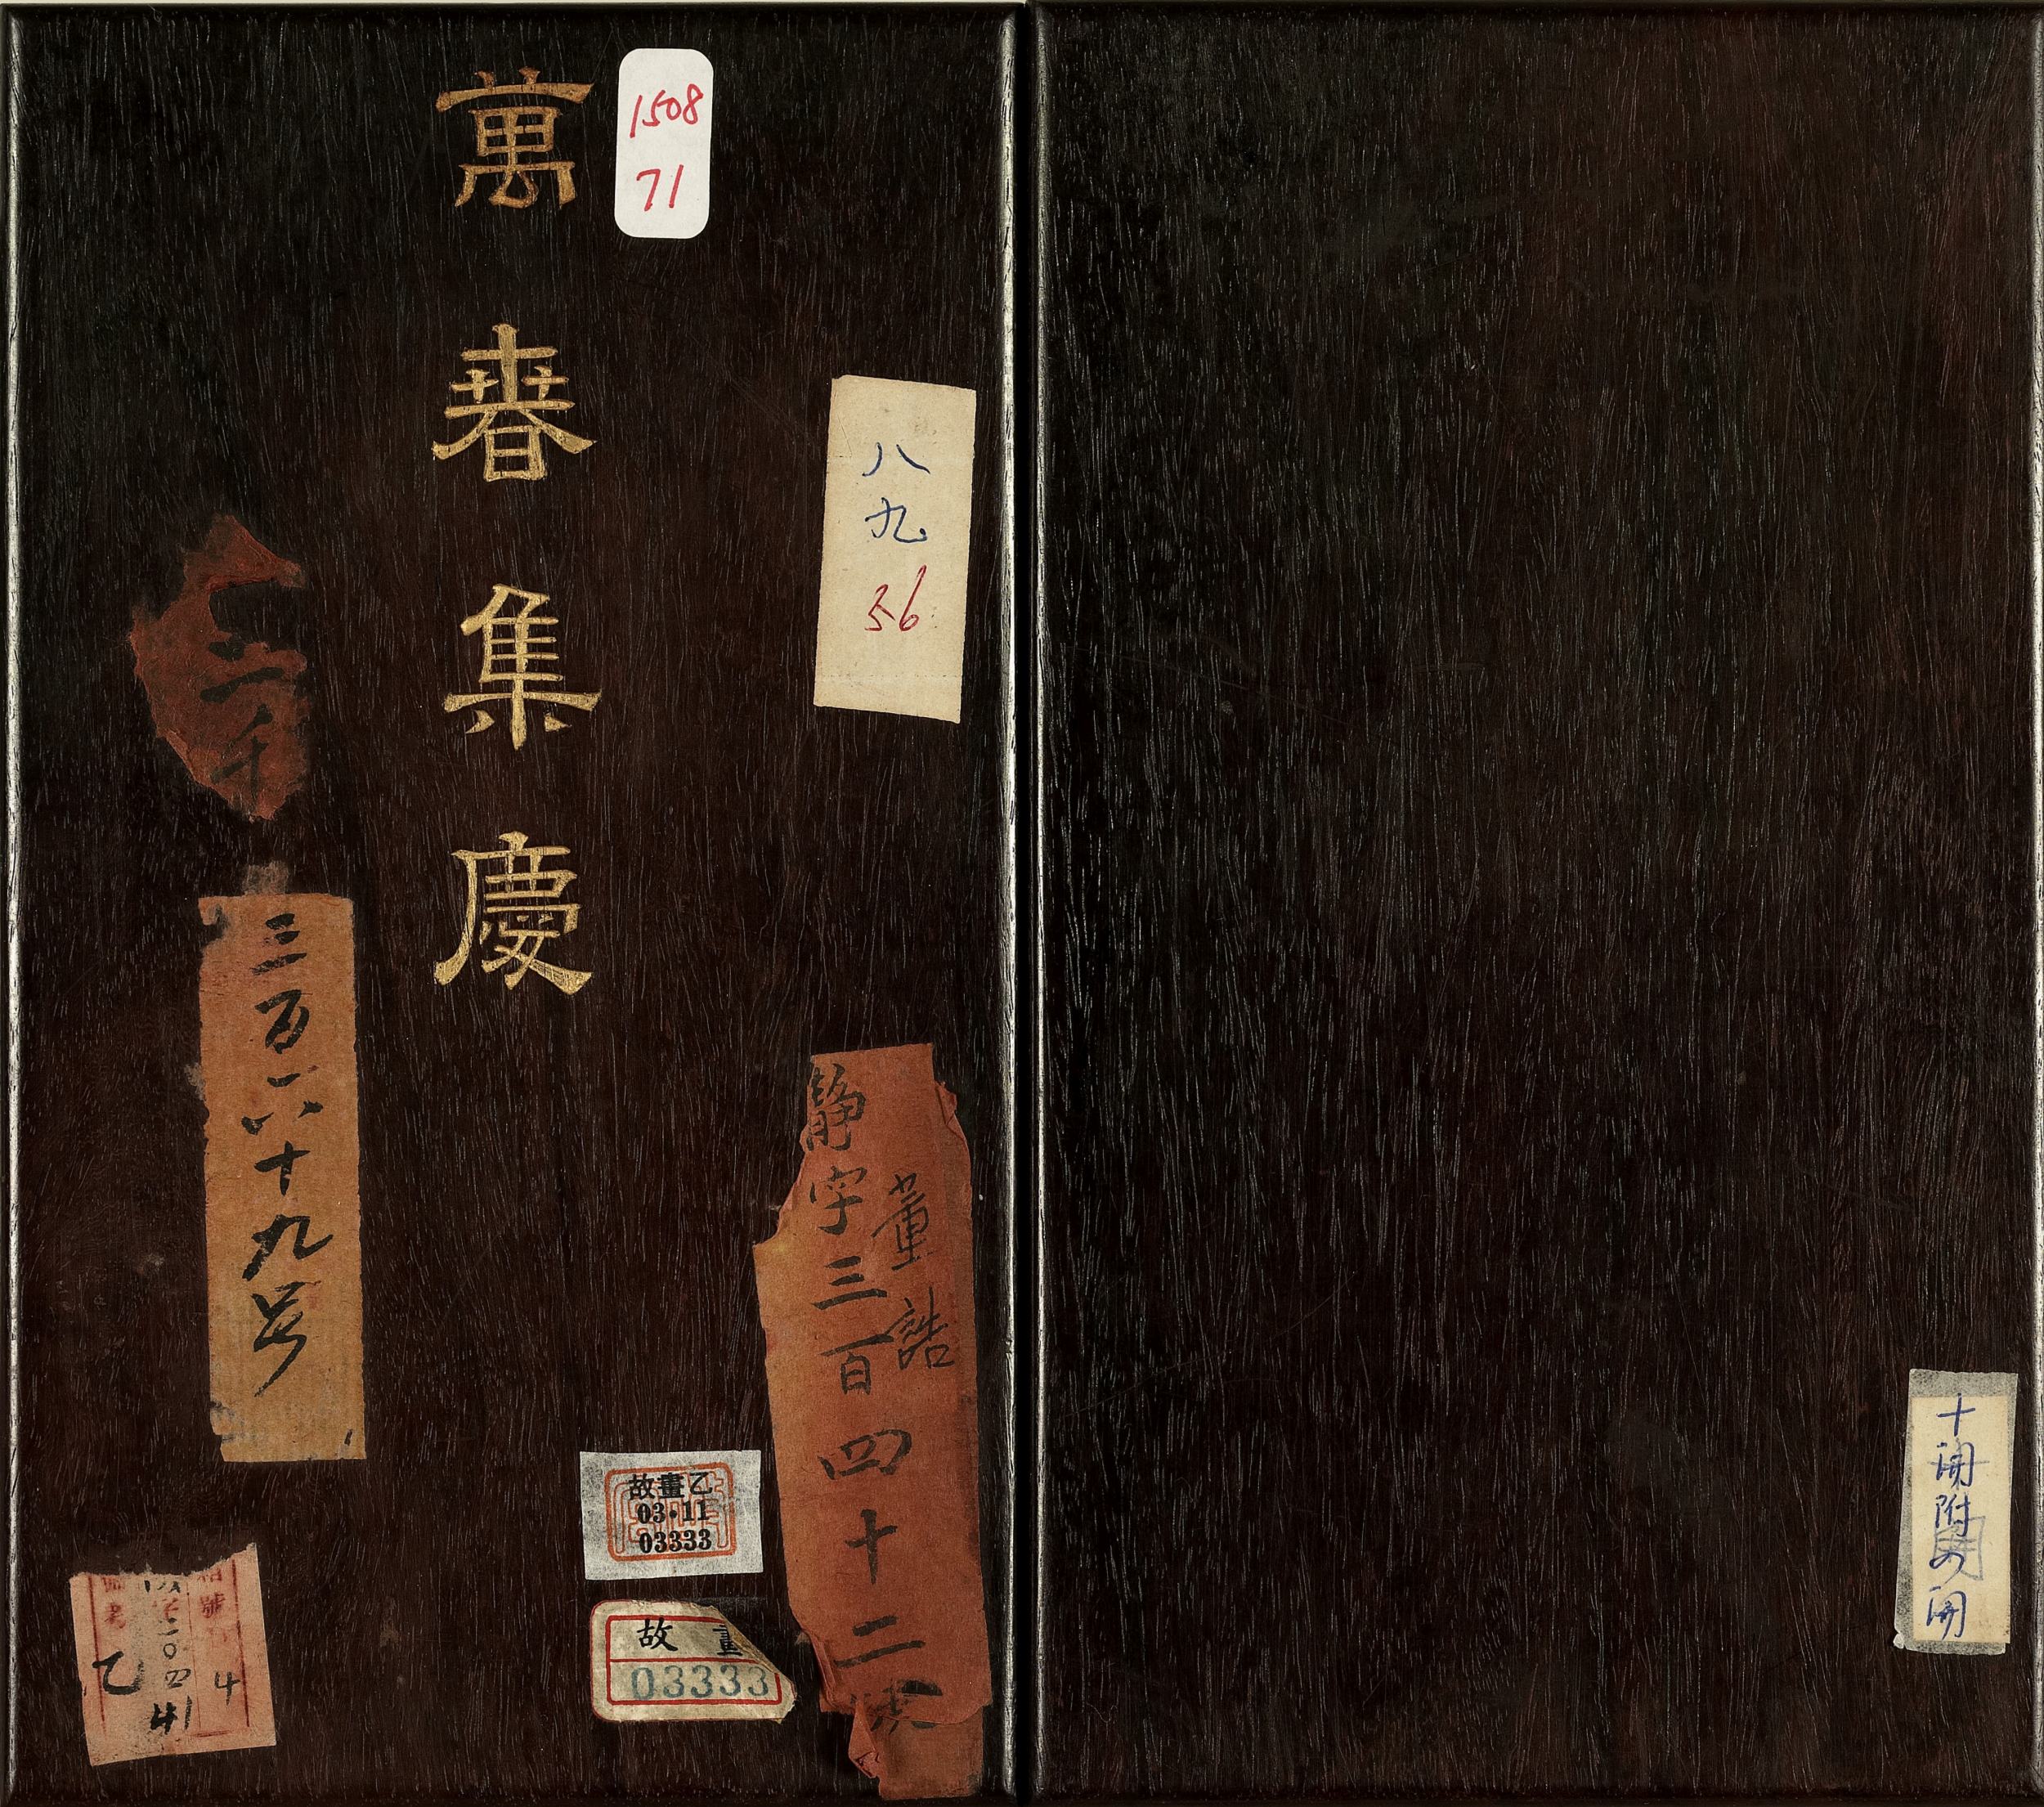 萬春集慶
1508
71
八九
56
二千
三百六十九号
董誥
静字三百四十二號
故畫乙
03·11
03333
故畫
03333
號 4
二〇四
乙
十開附四開